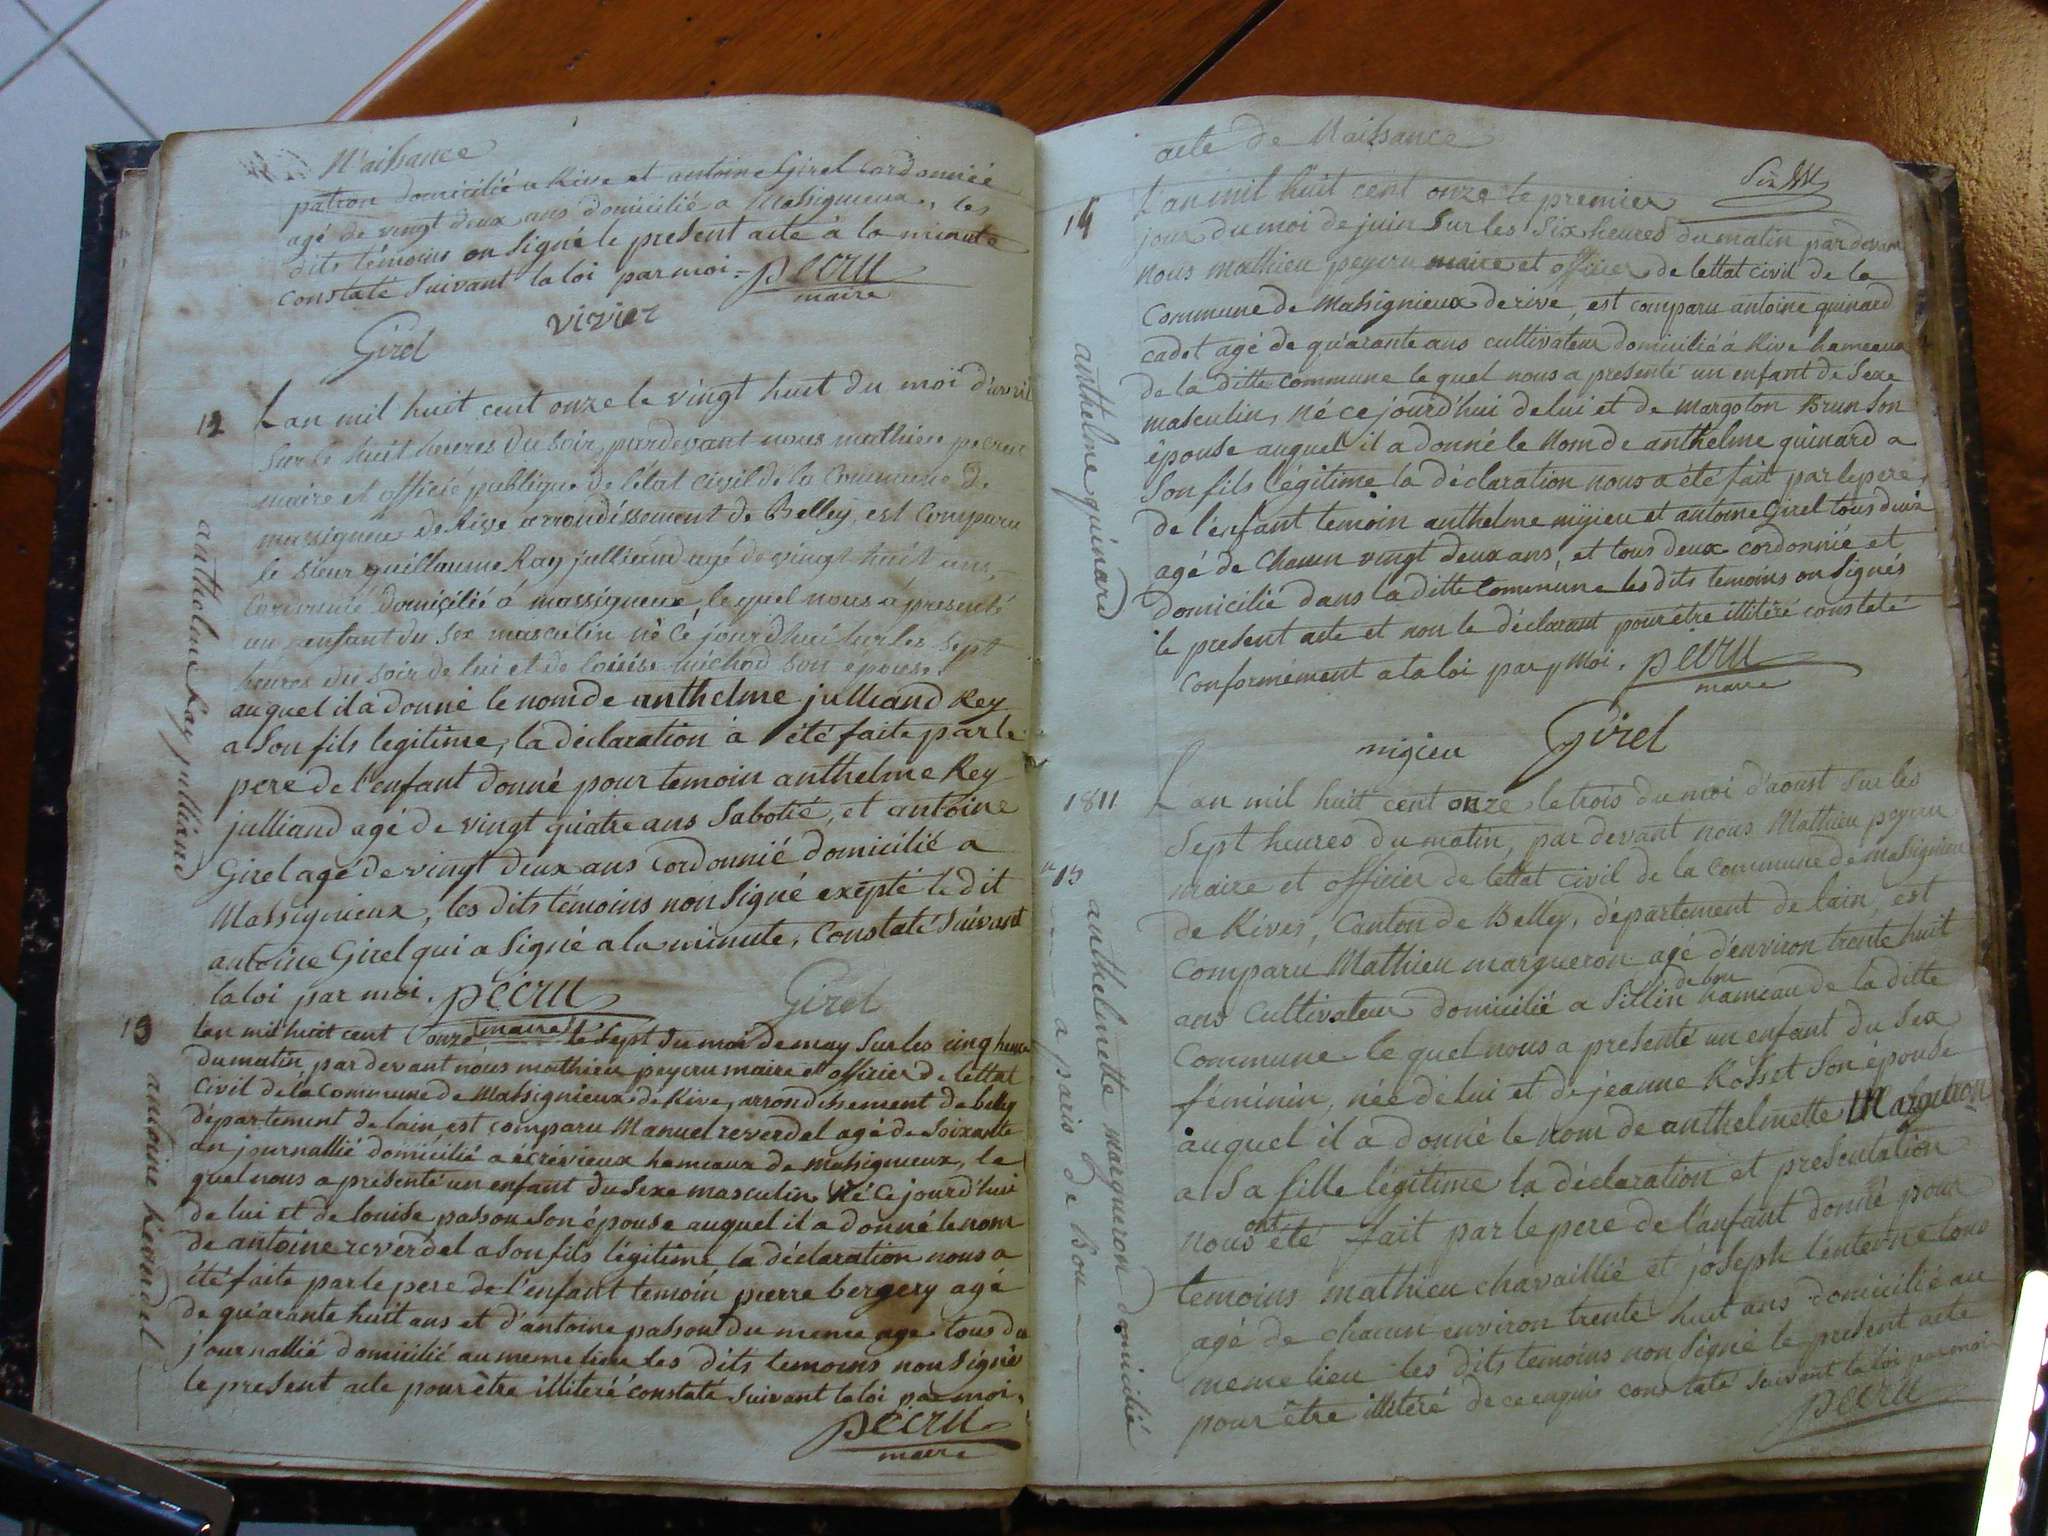 Naissance
patron domicilié a Rive et antoine Girel cordonnié
agé de vingt deux ans domicilié a Massigneux, les
dits témoins on signé le present acte à la minute
constaté suivant la loi par moi = pecru
maire
vivier
Girel
12
L'an mil huit cent onze le vingt huit du moi d'avril
sur le huit heures du soir, pardevant nous mathieu pecru
maire et officié publique de l'état civil de la Commune de
massigneu de Rive arrondissement de Belley, est Comparu
le sieur guillaume Ray julliand agé de vingt huit ans,
domicilié á massigneux, le quel nous á presenté
un enfant du sex masculin né Ce jourdhui sur les sept
heures du soir de lui et de louise michod son epouse.
auquel il a donné le nom de anthelme julliand Rey
a Son fils legitime, la déclaration à été faite par le
pere de l'enfant donné pour temoin anthelme Rey
julliand agé de vingt quatre ans Sabotié, et antoine
Girel agé de vingt deux ans Cordonnié domicilié a
Massignieux, les dits témoins non Signé exepté le dit
antoine Girel qui a Signé a la minute, Constaté Suivant
la loi par moi. pécru
maire
Girel
anthelme Ray julliand
13
lan mil huit cent onze le Sept du moi de may Sur les cinq heures
du matin, par devant nous mathieu peycru maire et officier de lettat
Civil de la Commune de Massignieux de Rive, arrondissement de belley
département de lain est comparu Manuel reverdel agé de Soixante
an journallié domicilié a écrévieux hameaux de massignieux, le
quel nous a présenté un enfant du Sexe masculin Né Ce jourd'hui
de lui et de louise passou Son épouse auquel il a donné le nom
de antoine reverdel a Son fils légitime la déclaration nous a
été faite par le pere de l'enfant temoin pierre bergery agé
de quarante huit ans et d'antoine passou du meme age tous du
journallié domicilié au meme lieu les dits temoins non Signés
le present acte pour être illiteré constaté Suivant la loi par moi,
pécru
maire
antoine Reverdel
acte de Naissance
14
L'an mil huit cent onze le premier
jour du moi de juin Sur les Six heures du matin par devant
nous mathieu peycru maire et officier de lettat civil de la
Commune de Massignieux de rive, est comparu antoine quinard
cadet agé de quarante ans cultivateur domicilié á Rive hameaux
de la ditte commune le quel nous a presenté un enfant de Sexe
masculin, né ce jourd'hui de lui et de margoton Brun Son
épouse auquel il a donné le Nom de anthelme quinard a
Son fils légitime la déclaration nous a été fait par le pere,
de l'enfant temoin anthelme mijieu et antoine Girel tous deux
agé de Chacun vingt deux ans, et tous deux cordonnié et
domicilié dans la ditte Commune les dits temoins on Signés
le present acte et non le déclarant pour être illitéré constaté
Conformément a la loi par Moi. pécru
maire
migieu Girel
anthelme quinard
1811
15
L'an mil huit cent onze le trois du moi d'aoust Sur les
Sept heures du matin, par devant nous Mathieu peycru
maire et officier de lettat civil de la commune de Massignieu
de Rives, Canton de Belley, département de lain, est
Comparu Mathieu margueron agé d'environ trente huit
ans Cultivateur domicilié a Sillin de bou hameau de la ditte
Commune le quel nous a presenté un enfant du Sex
féminin, née de lui et de jeanne Rosset Son épouse
auquel il a donné le nom de anthelmette Margueron
a Sa fille légitime la déclaration et presentation
nous ont été fait par le pere de l'anfant donné pour
temoins mathieu chavaillié et joseph l'enterne tous
agé de chacun environ trente huit ans domicilié au
meme lieu les dits temoins non signé le present acte
pour être illitéré de ce enquis constaté suivant la loi par moi
pécru
anthelmette margueron domicilié
a paris de Bou